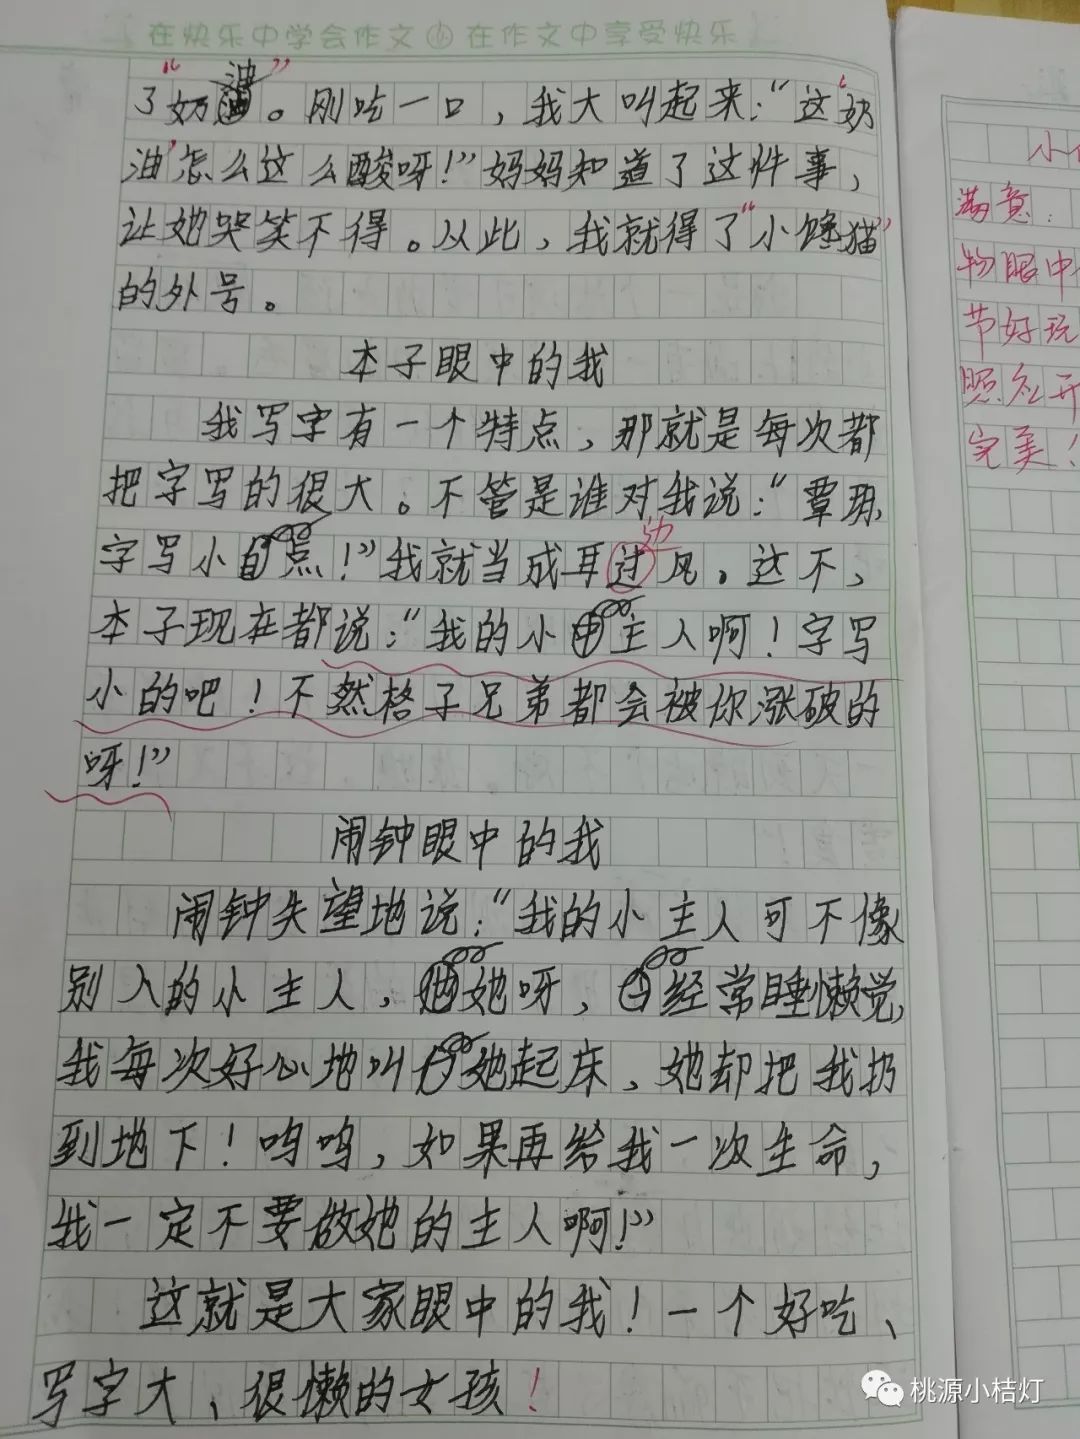 在快乐中学会作文 在作文中享受快乐
了“奶油”。刚吃一口，我大叫起来：“这‘奶
油’怎么这么酸呀！”妈妈知道了这件事，
让她哭笑不得。从此，我就得了“小馋猫”
的外号。
本子眼中的我
我写字有一个特点，那就是每次都
把字写的很大。不管是谁对我说：“覃
字写小点！”我就当成耳过风。这不，
边
本子现在都说：“我的小主人啊！字写
小的吧！不然格子兄弟都会被你涨破的
呀！”
闹钟眼中的我
闹钟失望地说：“我的小主人可不像
别人的小主人，她呀，经常睡懒觉，
我每次好心地叫她起床，她却把我扔
到地下！呜呜，如果再给我一次生命，
我一定不要做她的主人啊！”
这就是大家眼中的我！一个好吃、
写字大、很懒的女孩！
满意：
物眼中
节好玩
照应开
完美！
桃源小桔灯